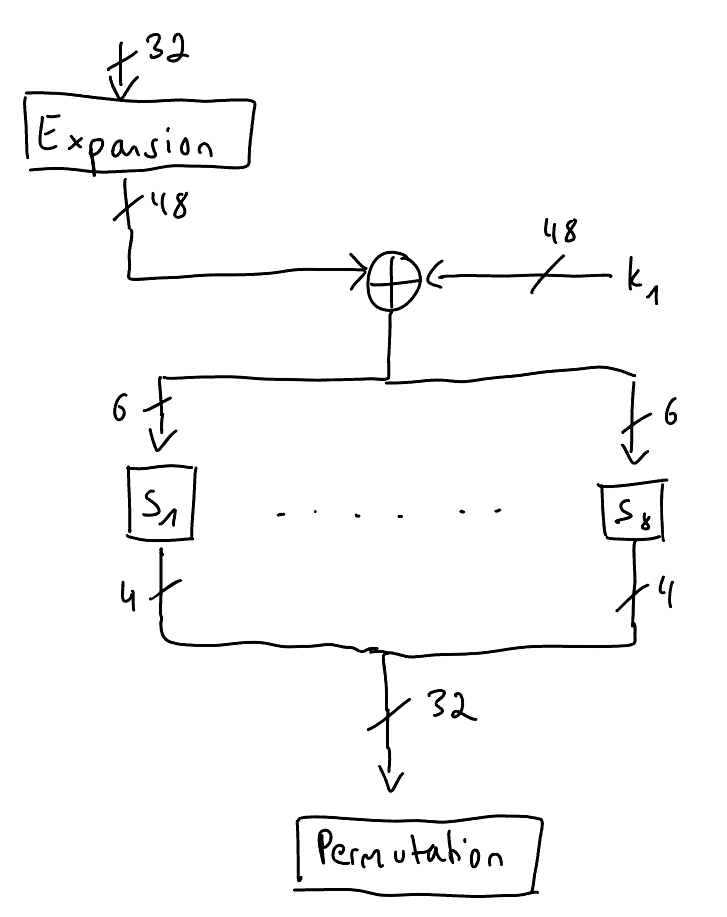 32
Expansion
48
48
k1
6
6
S1
S8
4
4
32
Permutation